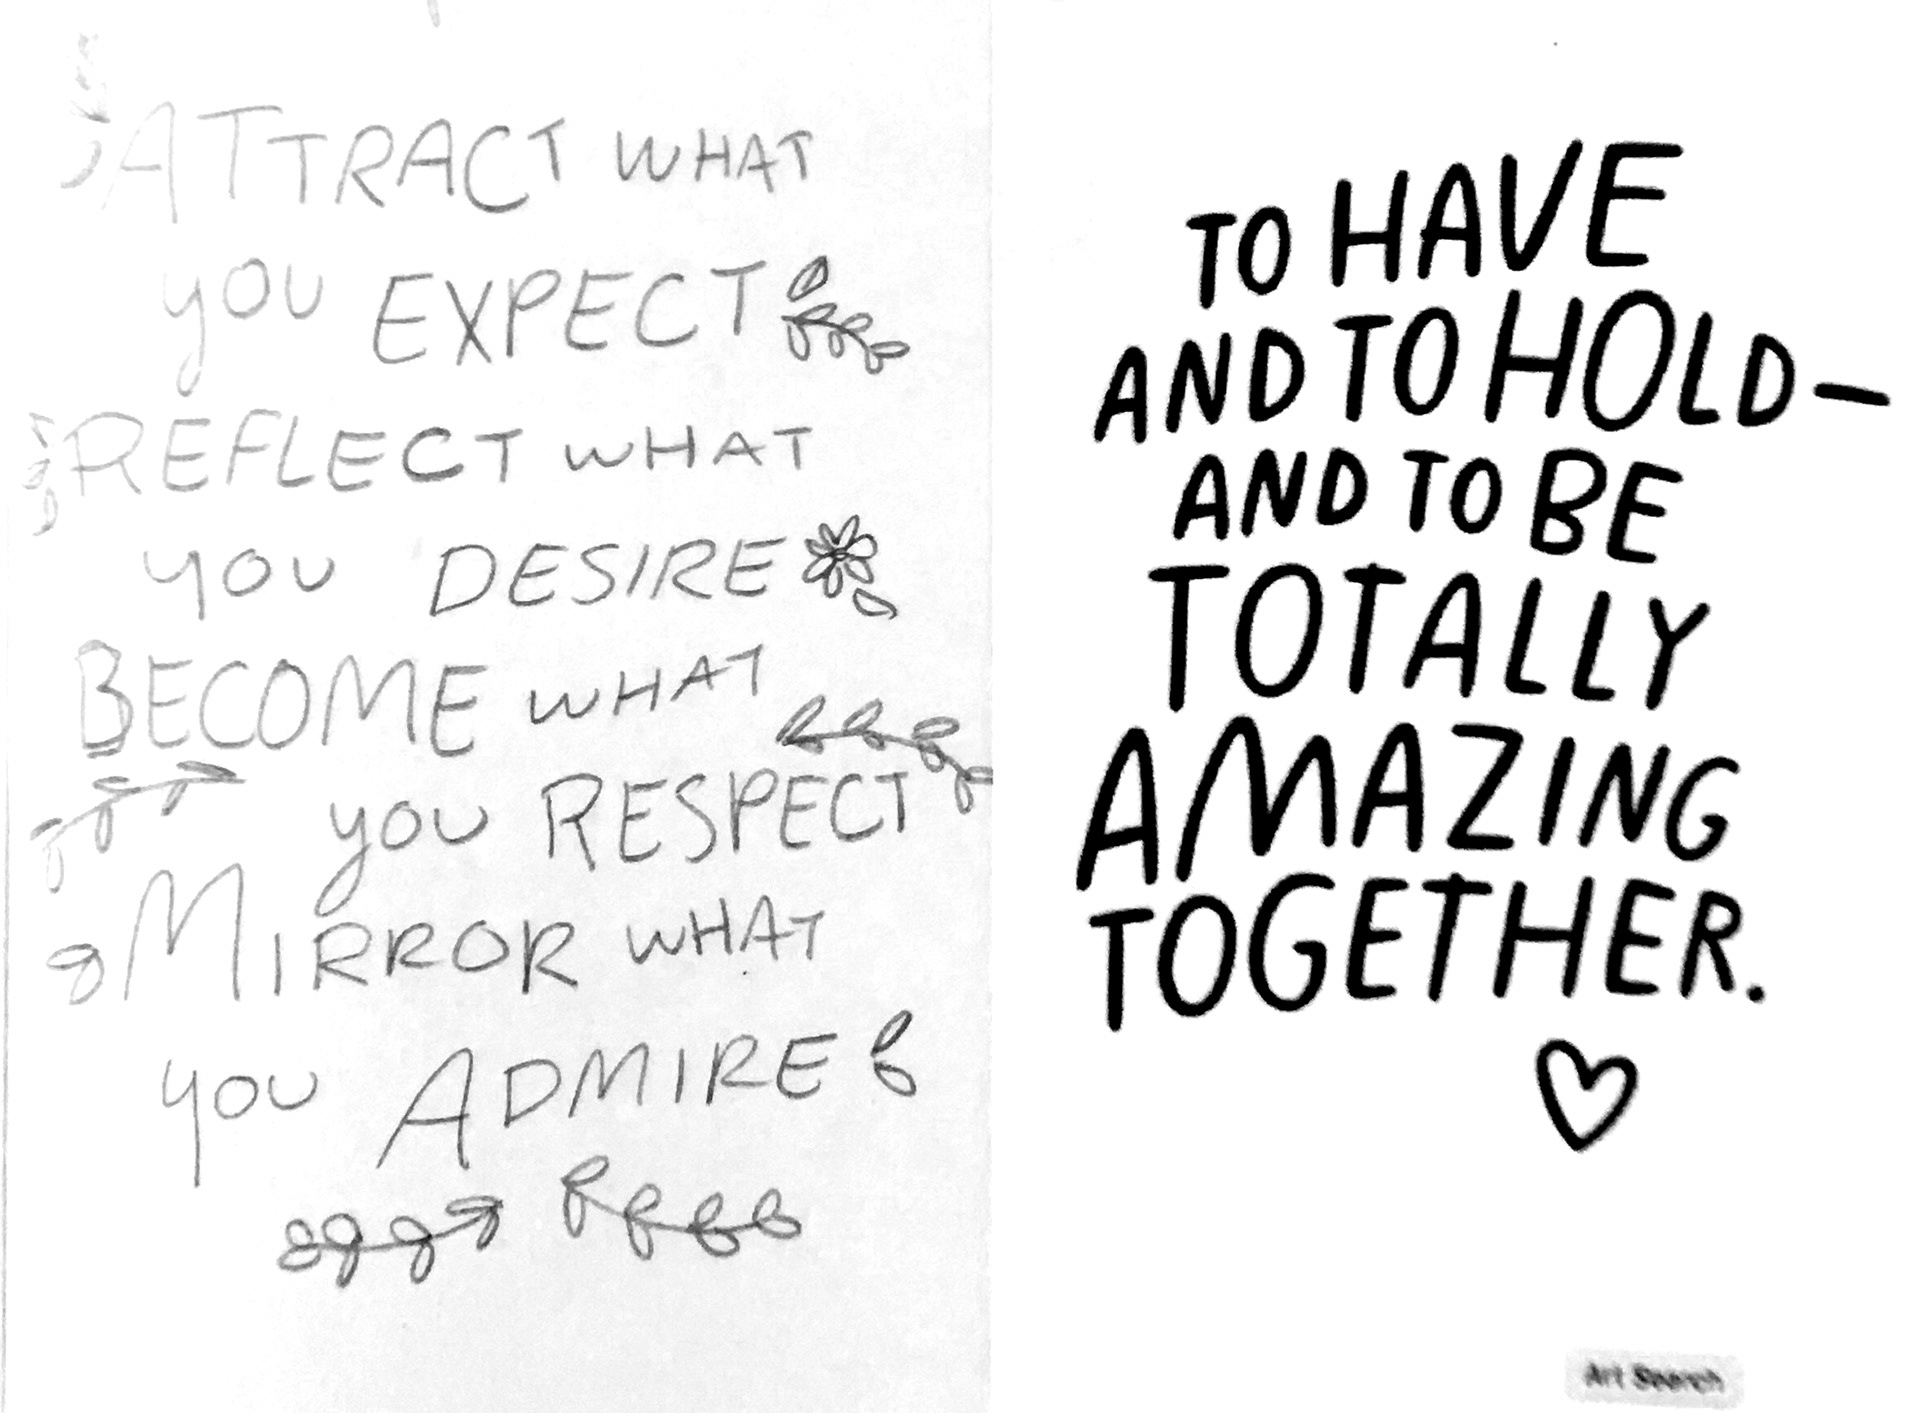 ATTRACT WHAT
you EXPECT
REFLECT WHAT
you DESIRE
BECOME WHAT
you RESPECT
MIRROR WHAT
you ADMIRE
TO HAVE
AND TO HOLD—
AND TO BE
TOTALLY
AMAZING
TOGETHER.
Art Search